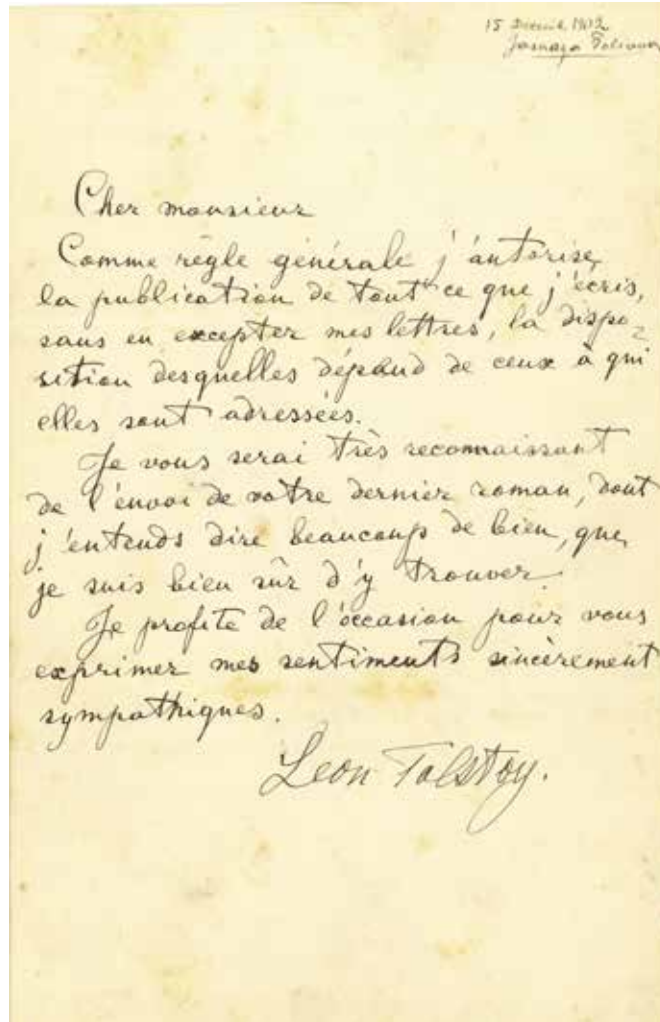 15
Jasnaya Poliana
Cher monsieur
Comme règle générale j'autorise
la publication de tout ce que j'écris,
sans en excepter mes lettres, la dispo-
sition desquelles dépend de ceux à qui
elles sont adressées.
Je vous serai très reconnaissant
de l'envoi de votre dernier roman, dont
j'entends dire beaucoup de bien, que
je suis bien sûr d'y trouver.
Je profite de l'occasion pour vous
exprimer mes sentiments sincèrement
sympathiques.
Leon Tolstoy.